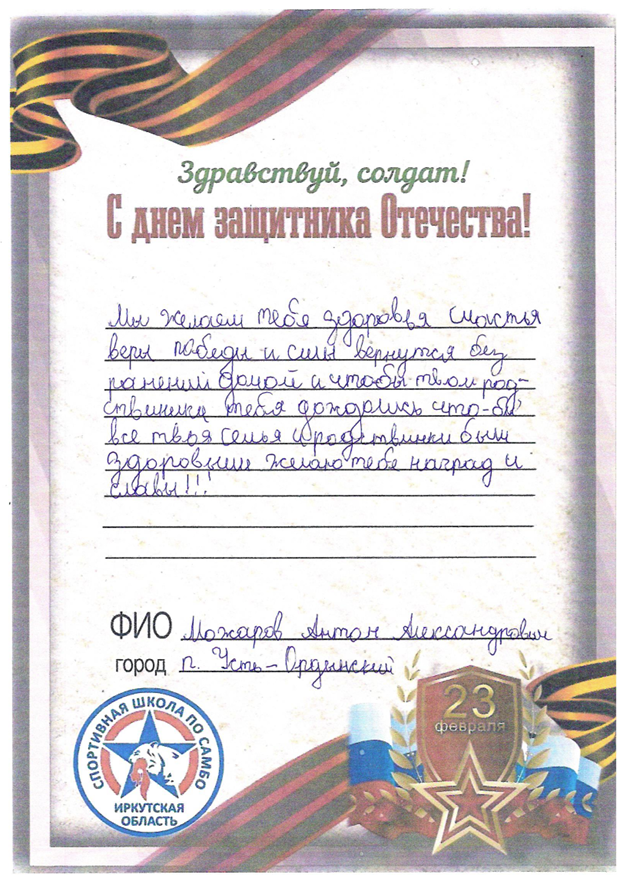 Здравствуй, солдат!
С днем защитника Отечества!
Мы желаем тебе здоровья счастья
веры победы и силы вернутся без
ранений домой и чтобы твои род-
ствиники тебя дождались что-бы
все твоя семья и родствинки были
здоровыми желаю тебе наград и
славы!!!
ФИО Можаров Антон Александрович
город п. Усть-Ордынский
23
февраля
СПОРТИВНАЯ ШКОЛА ПО САМБО
ИРКУТСКАЯ
ОБЛАСТЬ